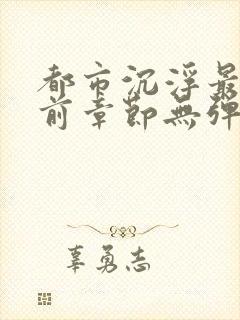 都市沉浮最
前章節無彈
辜勇志